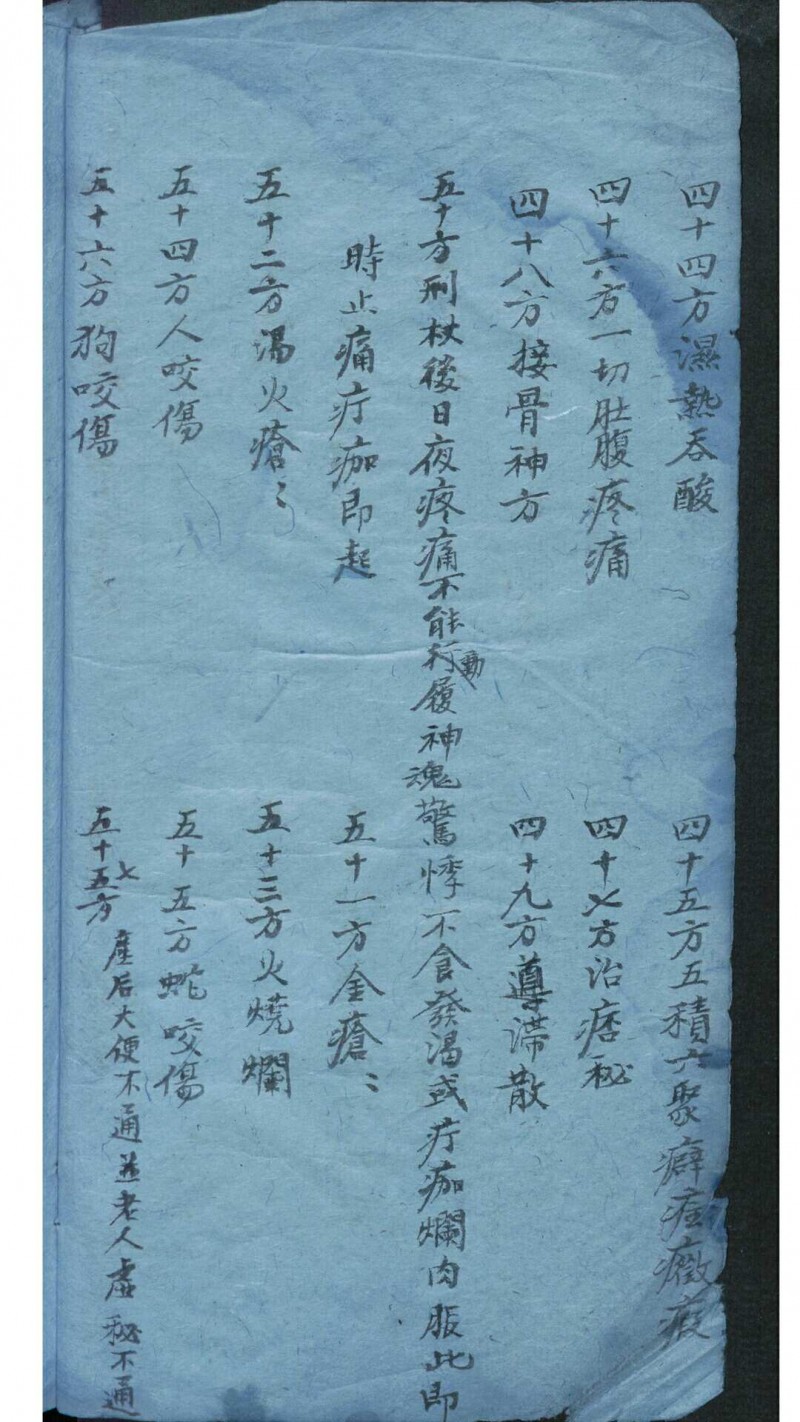 四十四方濕熱吞酸
四十五方五積六聚癖疰癥瘕
四十六方一切肚腹疼痛
四十七方治痞秘
四十八方接骨神方
四十九方導滯散
五十方刑杖後日夜疼痛不能行動履神魂驚悸不食發渴或疔痂爛肉服此即
時止痛疔痂即起
五十一方金瘡〻
五十二方湯火瘡〻
五十三方火燒爛
五十四方人咬傷
五十五方蛇咬傷
五十六方狗咬傷
五十五七方產后大便不通並老人虛秘不通